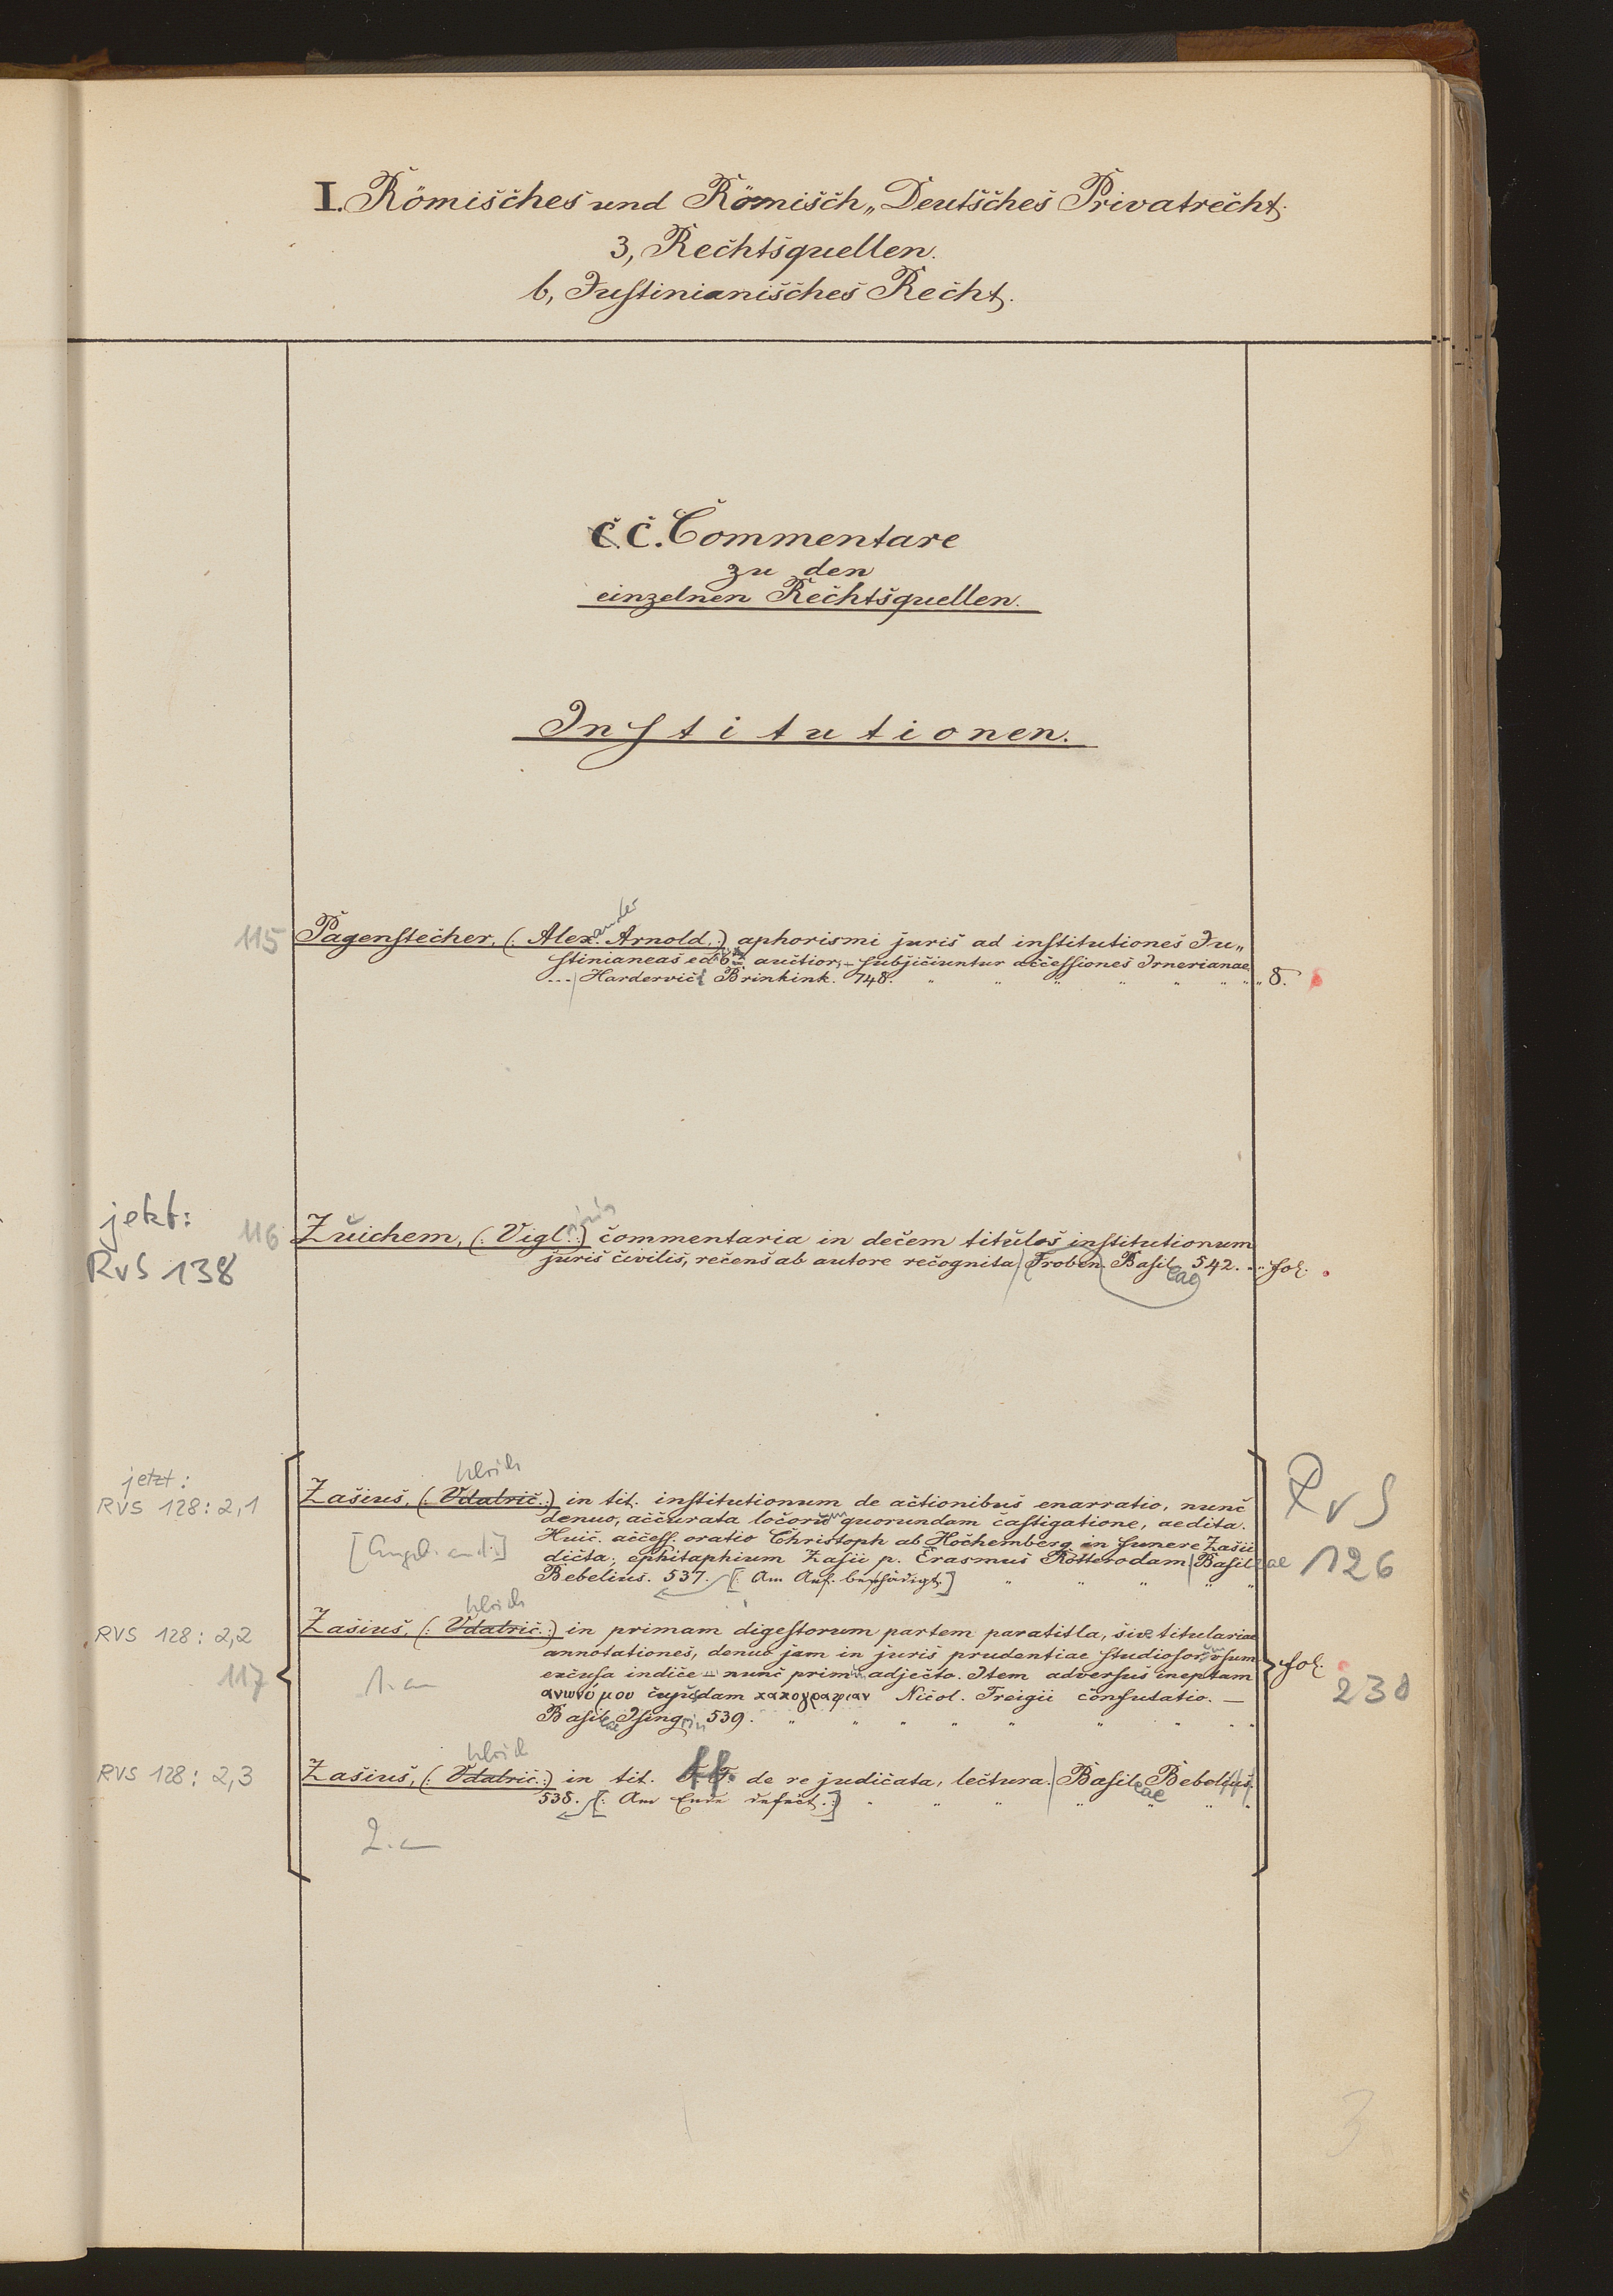 I. Römisches und Römisch„ Deutsches Privatrecht.
3, Rechtsquellen.
b, Justinianisches Recht.
C. C. Commentare
zu den
einzelnen Rechtsquellen.
Institutionen.
115 Pagenstecher, (: Alex. Arnold :) aphorismi juris ad institutiones Ju„
ander
stinianeas ed 6 auctior, – subjiciuntur accessiones Irnerianae.
... Hardervic Brinkink. 748. 8.
jetzt:
RvS 138
116 Zuichem, (: Vigl. :) commentaria in decem titulos institutionum
juris civilis, recens ab autore recognita Froben. Basileae 542. fol.
jetzt:
RVS 128: 2,1
Ulrich
Zasius, (: Udalric. :) in tit. institutionum de actionibus enarratio, nunc
denuo, accurata locorum quorundam castigatione, aedita.
Huic. access. oratio Christoph ab Hochemberg in funere Zasii
dicta; ephitaphium Zasii p. Erasmus Rotterodam Basileae
Bebelius. 537. [: Am Anf. beschädigt.]
RvS
126
Ulrich
RVS 128: 2,2
Zasius, (: Udalric. :) in primam digestorum partem paratitla, sive titulariae
annotationes, denuo jam in juris prudentiae studiosorum usum
excusa indice – nunc primum adjecto. Item adversus ineptam
117
1. an
ανωνύμου cujusdam κακογραφιαν Nicol. Freigii confutatio. —
Basileae Isingrin 539.
fol.
230
Ulrich
RVS 128: 2,3
Zasius, (: Udalric. :) in tit. ff. de re judicata, lectura. Basileae Bebelius.
538. [: Am Ende defect. :]
2. an
3